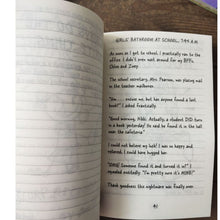 GIRLS' BATHROOM AT SCHOOL, 7:44 A.M.
As soon as I got to school, I practically ran to the
office. I didn't even wait around for my BFFs,
Chloe and Zoey.
The school secretary, Mrs. Pearson, was placing mail
in the teacher mailboxes.
"Um . . . excuse me, but has anyone found a lost
book?" I asked frantically.
"Good morning, Nikki. Actually, a student DID turn
in a book yesterday! he said he found it in the hall near
the cafeteria."
I could not believe my luck! I was so happy, I
could have hugged her.
"OMG! Someone found it and turned it in?" I
repeated excitedly. "I'm pretty sure it's MINE!"
Thank goodness the nightmare was finally over.